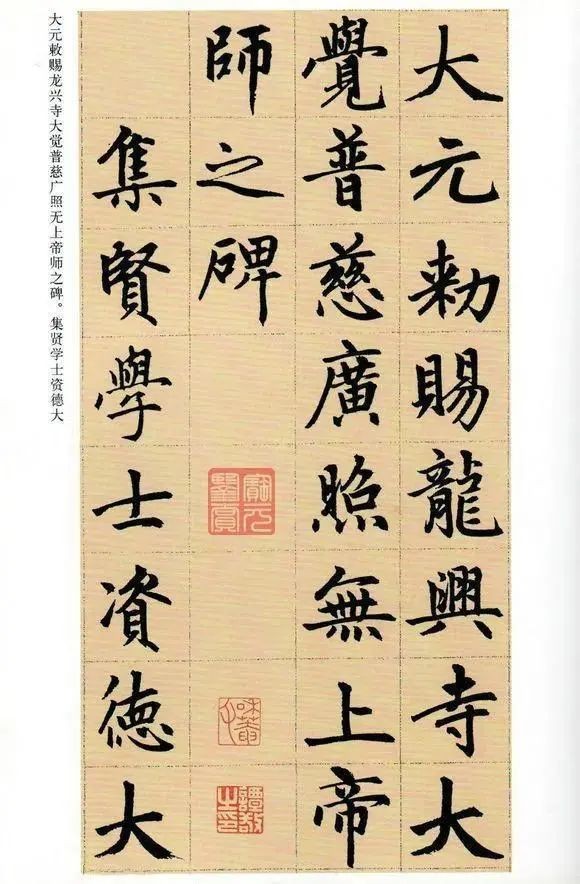 大元敕賜龍興寺大
覺普慈廣照無上帝
師之碑
集賢學士資德大
大元敕赐龙兴寺大觉普慈广照无上帝师之碑。集贤学士资德大